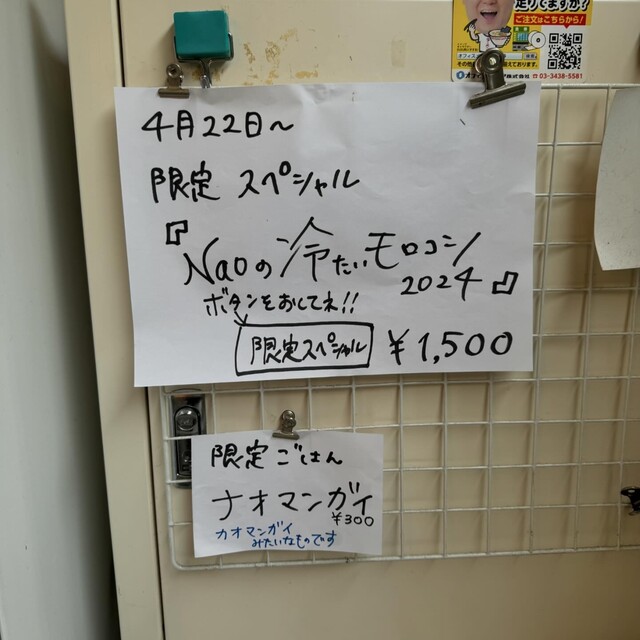 足りてますか?
ご注文はこちらから!
03-3438-5581
4月22日〜
限定 スペシャル
『Naoの冷たいモロコシ
2024』
ボタンをおしてネ!!
限定スペシャル ¥1,500
限定ごはん
ナオマンガイ
¥300
カオマンガイ
みたいなものです